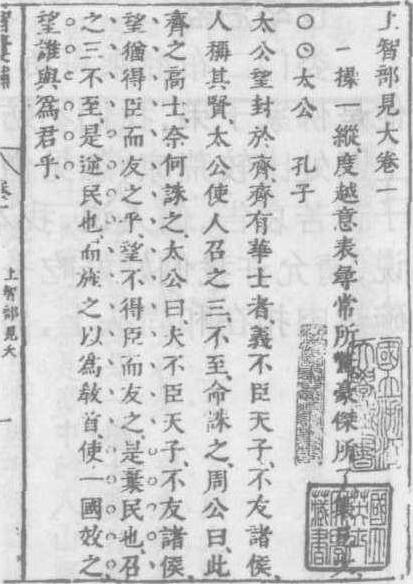 上智部見大卷一
一操一縱度越意表尋常所驚豪傑所了集見大
〇〇太公 孔子
太公望封於齊齊有華士者義不臣天子不友諸侯
人稱其賢太公使人召之三不至命誅之周公曰此
齊之高士奈何誅之太公曰夫不臣天子不友諸侯
望猶得臣而友之乎望不得臣而友之是棄民也召
之三不至是逆民也而旌之以為教首使一國效之
望誰與為君乎
智囊補
上智部見大
一